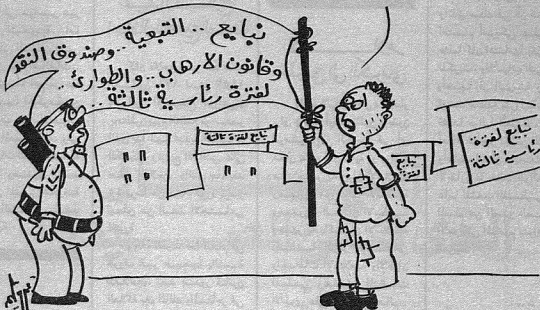 نبايع .. التبعية .. وصندوق النقد
وقانون الارهاب .. والطوارئ ..
لفترة رئاسية ثالثة ..
نبايع لفترة ثالثة
نبايع
لفترة
نبايع لفترة
رئاسية ثالثة